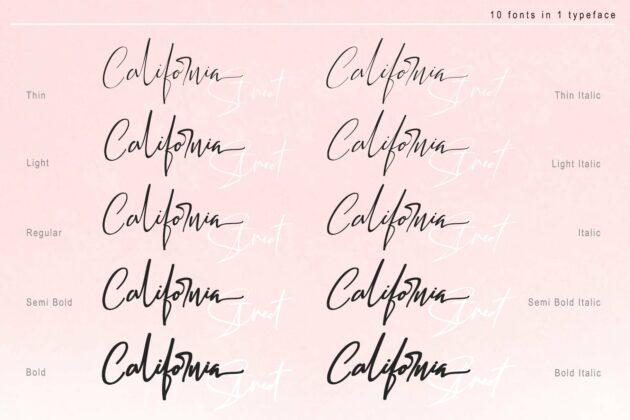 10 fonts in 1 typeface
Thin California Street California Street Thin Italic
Light California Street California Street Light Italic
Regular California Street California Street Italic
Semi Bold California Street California Street Semi Bold Italic
Bold California Street California Street Bold Italic